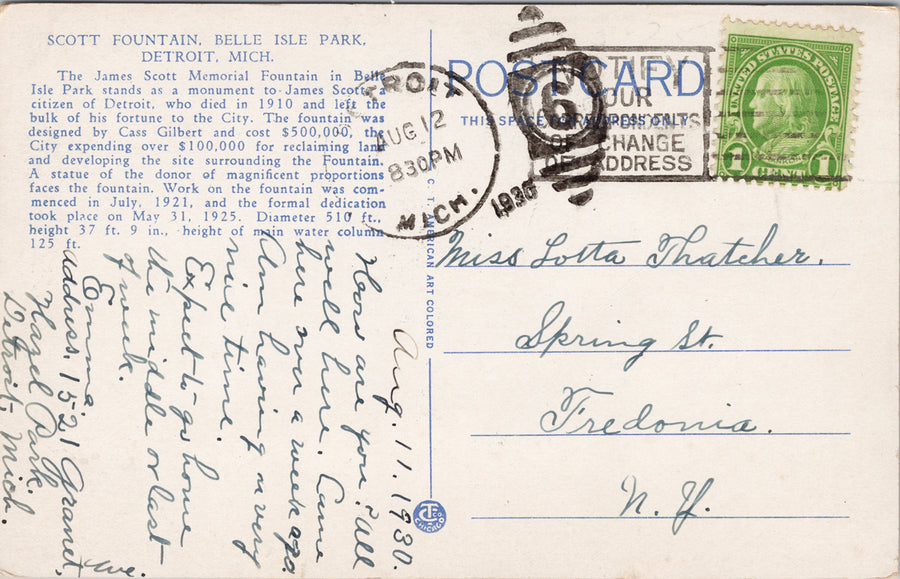 SCOTT FOUNTAIN, BELLE ISLE PARK,
DETROIT, MICH.
The James Scott Memorial Fountain in Belle
Isle Park stands as a monument to James Scott, a
citizen of Detroit, who died in 1910 and left the
bulk of his fortune to the City. The fountain was
designed by Cass Gilbert and cost $500,000, the
City expending over $100,000 for reclaiming land
and developing the site surrounding the Fountain.
A statue of the donor of magnificent proportions
faces the fountain. Work on the fountain was com-
menced in July, 1921, and the formal dedication
took place on May 31, 1925. Diameter 510 ft.,
height 37 ft. 9 in., height of main water column
125 ft.
POST CARD
THIS SPACE FOR ADDRESS ONLY
DETROIT
AUG 12
8 30 PM
MICH.
1930
6
NOTIFY
YOUR
CORRESPONDENTS
OF CHANGE
OF ADDRESS
UNITED STATES POSTAGE
1 CENT 1
C. T. AMERICAN ART COLORED
Miss Lotta Thatcher.
Spring St.
Fredonia.
N. Y.
Aug. 11. 1930.
How are you? All
well here. Came
here over a week ago.
Am having a very
nice time.
Expect to go home
the middle or last
of week.
Emma.
Address. 1521
Ave.
Hazel Park.
Detroit, Mich.
CT CO
CHICAGO